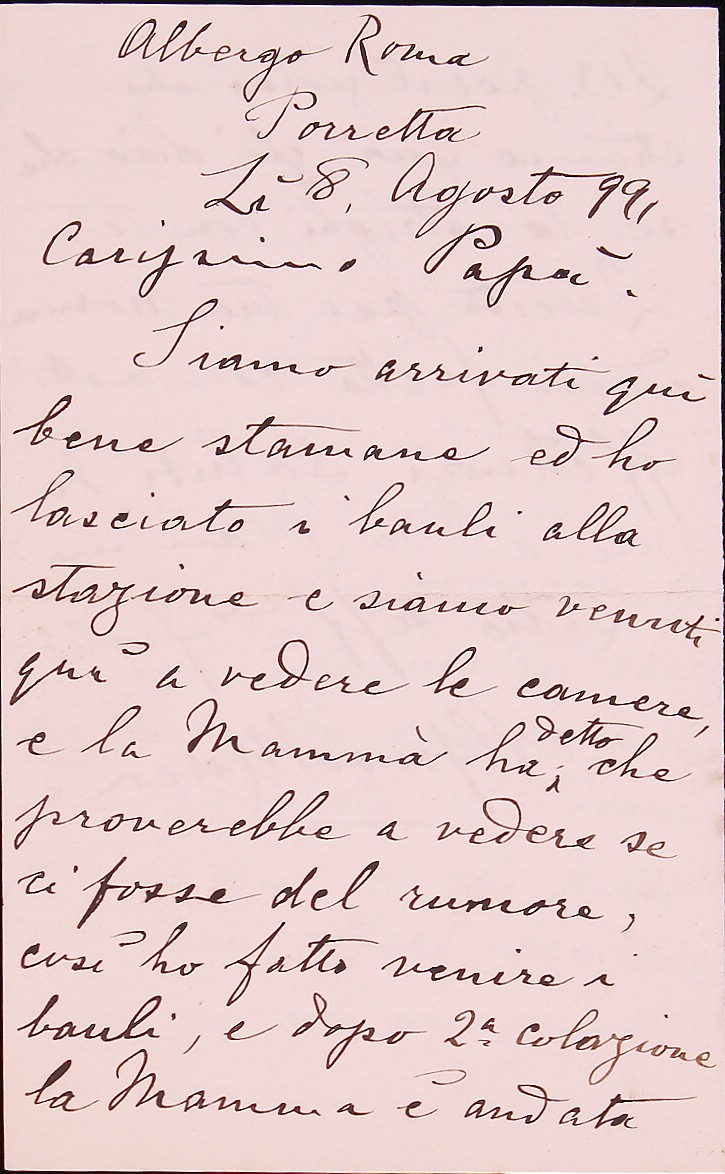 Albergo Roma
Porretta
Li 8, Agosto 99,
Carissimo Papà.
Siamo arrivati quì
bene stamane ed ho
lasciato i bauli alla
stazione e siamo venuti
quì a vedere le camere,
e la Mammà ha detto che
proverebbe a vedere se
ci fosse del rumore,
così ho fatto venire i
bauli, e dopo 2ª colazione
la Mamma è andata